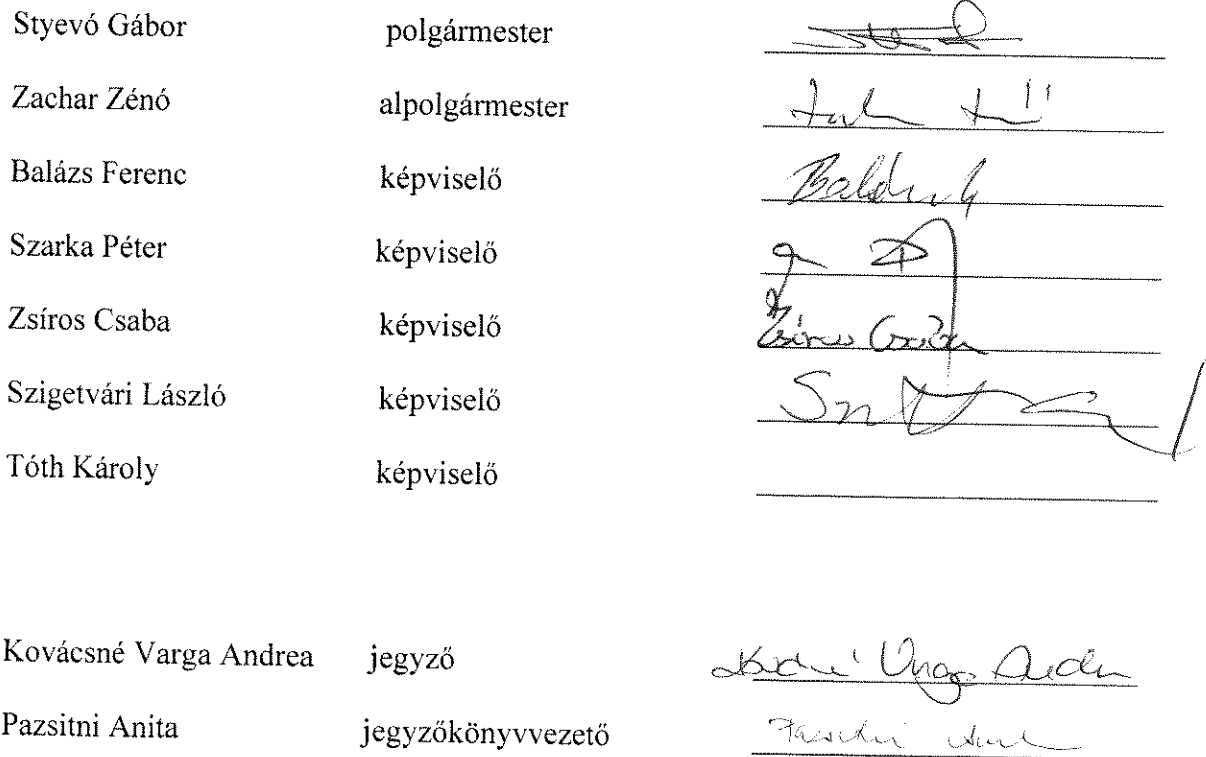 Styevó Gábor polgármester
Zachar Zénó alpolgármester
Balázs Ferenc képviselő
Szarka Péter képviselő
Zsíros Csaba képviselő Zsíros Csaba
Szigetvári László képviselő
Tóth Károly képviselő
Kovácsné Varga Andrea jegyző
Pazsitni Anita jegyzőkönyvvezető